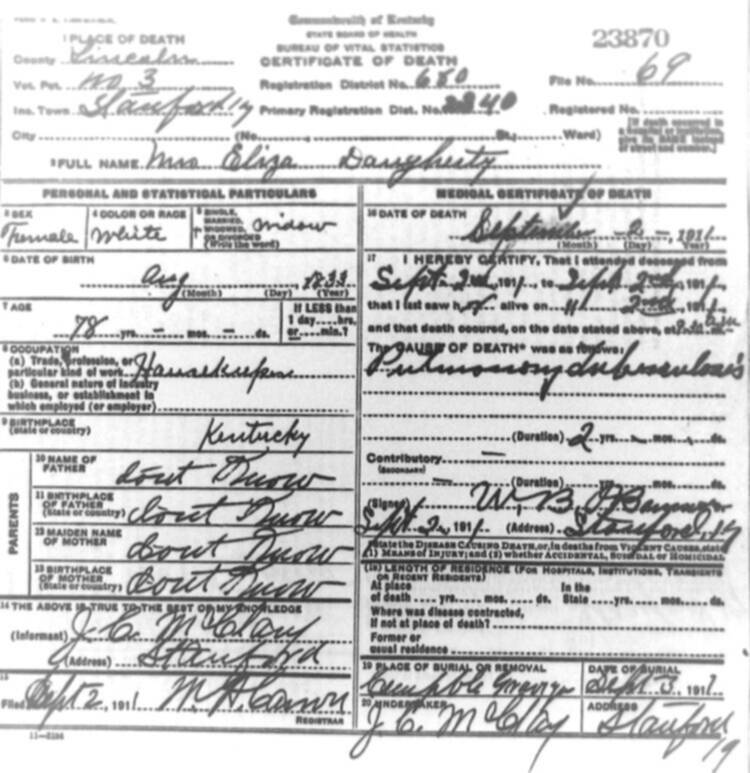 Commonwealth of Kentucky
STATE BOARD OF HEALTH
BUREAU OF VITAL STATISTICS
CERTIFICATE OF DEATH
23870
1 PLACE OF DEATH
County Lincoln
Vot. Pct. No. 3
Inc. Town Stanford Ky
Registration District No. 680
Primary Registration Dist. No. 2840
File No. 69
Registered No.
City (No. St., Ward)
[If death occurred in a hospital or institution, give its NAME instead of street and number.]
2 FULL NAME Mrs Eliza Daugherty
PERSONAL AND STATISTICAL PARTICULARS
3 SEX
Female
4 COLOR OR RACE
White
5 SINGLE, MARRIED, WIDOWED, OR DIVORCED (Write the word)
Widow
6 DATE OF BIRTH
Aug 1833
(Month) (Day) (Year)
7 AGE
78 yrs. — mos. — ds.
If LESS than 1 day ... hrs. or ... min.?
8 OCCUPATION
(a) Trade, profession, or particular kind of work Housekeeper
(b) General nature of industry business, or establishment in which employed (or employer)
9 BIRTHPLACE
(State or country)
Kentucky
PARENTS
10 NAME OF FATHER
dont Know
11 BIRTHPLACE OF FATHER (State or country)
dont Know
12 MAIDEN NAME OF MOTHER
dont Know
13 BIRTHPLACE OF MOTHER (State or country)
dont Know
14 THE ABOVE IS TRUE TO THE BEST OF MY KNOWLEDGE
(Informant) J. C. McClary
(Address) Stanford
15
Filed Sept 2, 1911
REGISTRAR
MEDICAL CERTIFICATE OF DEATH
16 DATE OF DEATH
September - 2 -, 1911
(Month) (Day) (Year)
17 I HEREBY CERTIFY, That I attended deceased from
Sept 2nd 1911, to Sept 2nd, 1911,
that I last saw her alive on " 2nd, 1911,
and that death occured, on the date stated above, at
The CAUSE OF DEATH* was as follows:
Pulmonary tuberculosis
(Duration) 2 yrs. mos. ds.
Contributory —
(SECONDARY)
— (Duration) yrs. mos. ds.
(Signed) W. B. O'Bannon
Sept. 2, 1911 (Address) Stanford, Ky
*State the DISEASE CAUSING DEATH, or, in deaths from VIOLENT CAUSES, state
(1) MEANS OF INJURY; and (2) whether ACCIDENTAL, SUICIDAL OR HOMICIDAL
(18) LENGTH OF RESIDENCE (FOR HOSPITALS, INSTITUTIONS, TRANSIENTS OR RECENT RESIDENTS)
At place of death yrs. mos. ds. In the State yrs. mos. ds.
Where was disease contracted, if not at place of death?
Former or usual residence
19 PLACE OF BURIAL OR REMOVAL
DATE OF BURIAL
Sept. 3, 1911
20 UNDERTAKER
J. C. McClary
ADDRESS
Stanford Ky